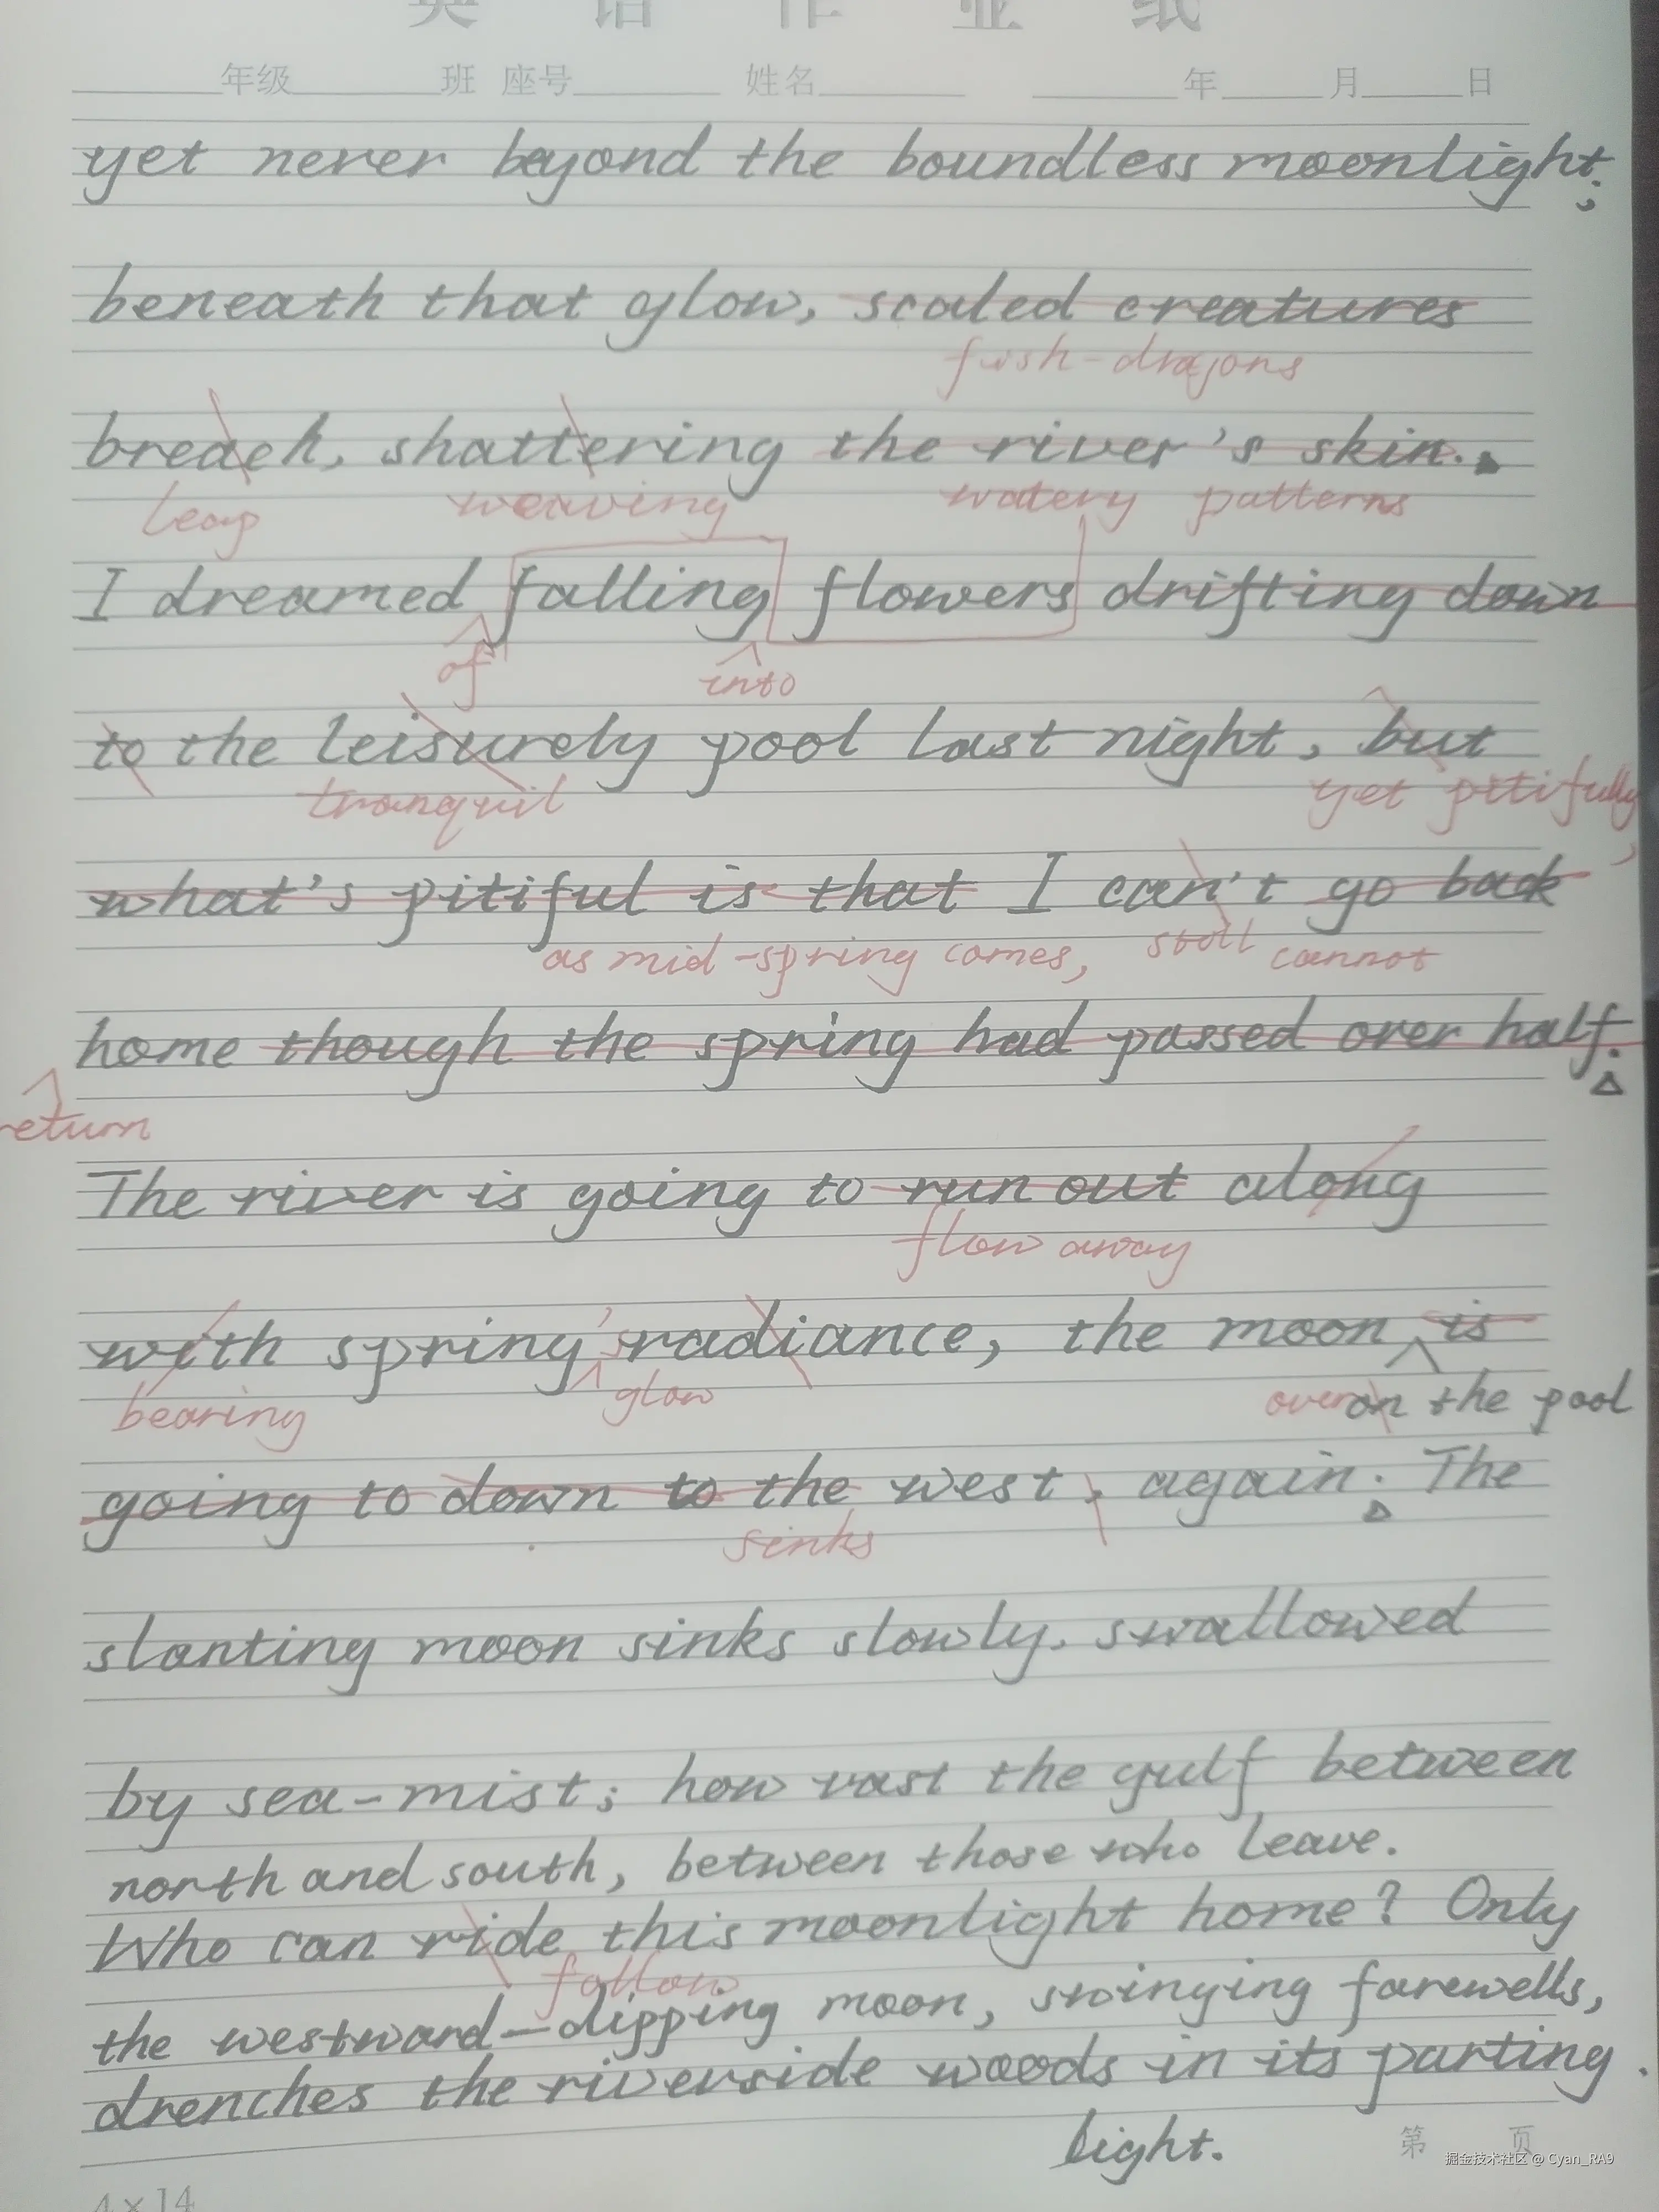 英 语 作 业 纸
年级 班 座号 姓名 年 月 日
yet never beyond the boundless moonlight;
beneath that glow, scaled creatures
fish-dragons
breach, shattering the river's skin.
leap weaving watery patterns
I dreamed falling flowers drifting down
of into
to the leisurely pool last night, but
tranquil yet pitifully,
what's pitiful is that I can't go back
as mid-spring comes, still cannot
home though the spring had passed over half.
return
The river is going to run out along
flow away
with spring's radiance, the moon is
bearing glow over on the pool
going to down to the west, again. The
sinks
slanting moon sinks slowly. swallowed
by sea-mist; how vast the gulf between
north and south, between those who leave.
Who can ride this moonlight home? Only
follow
the westward-dipping moon, swinging farewells,
drenches the riverside woods in its parting.
light.
第 页
掘金技术社区 @ Cyan_RA9
4×14